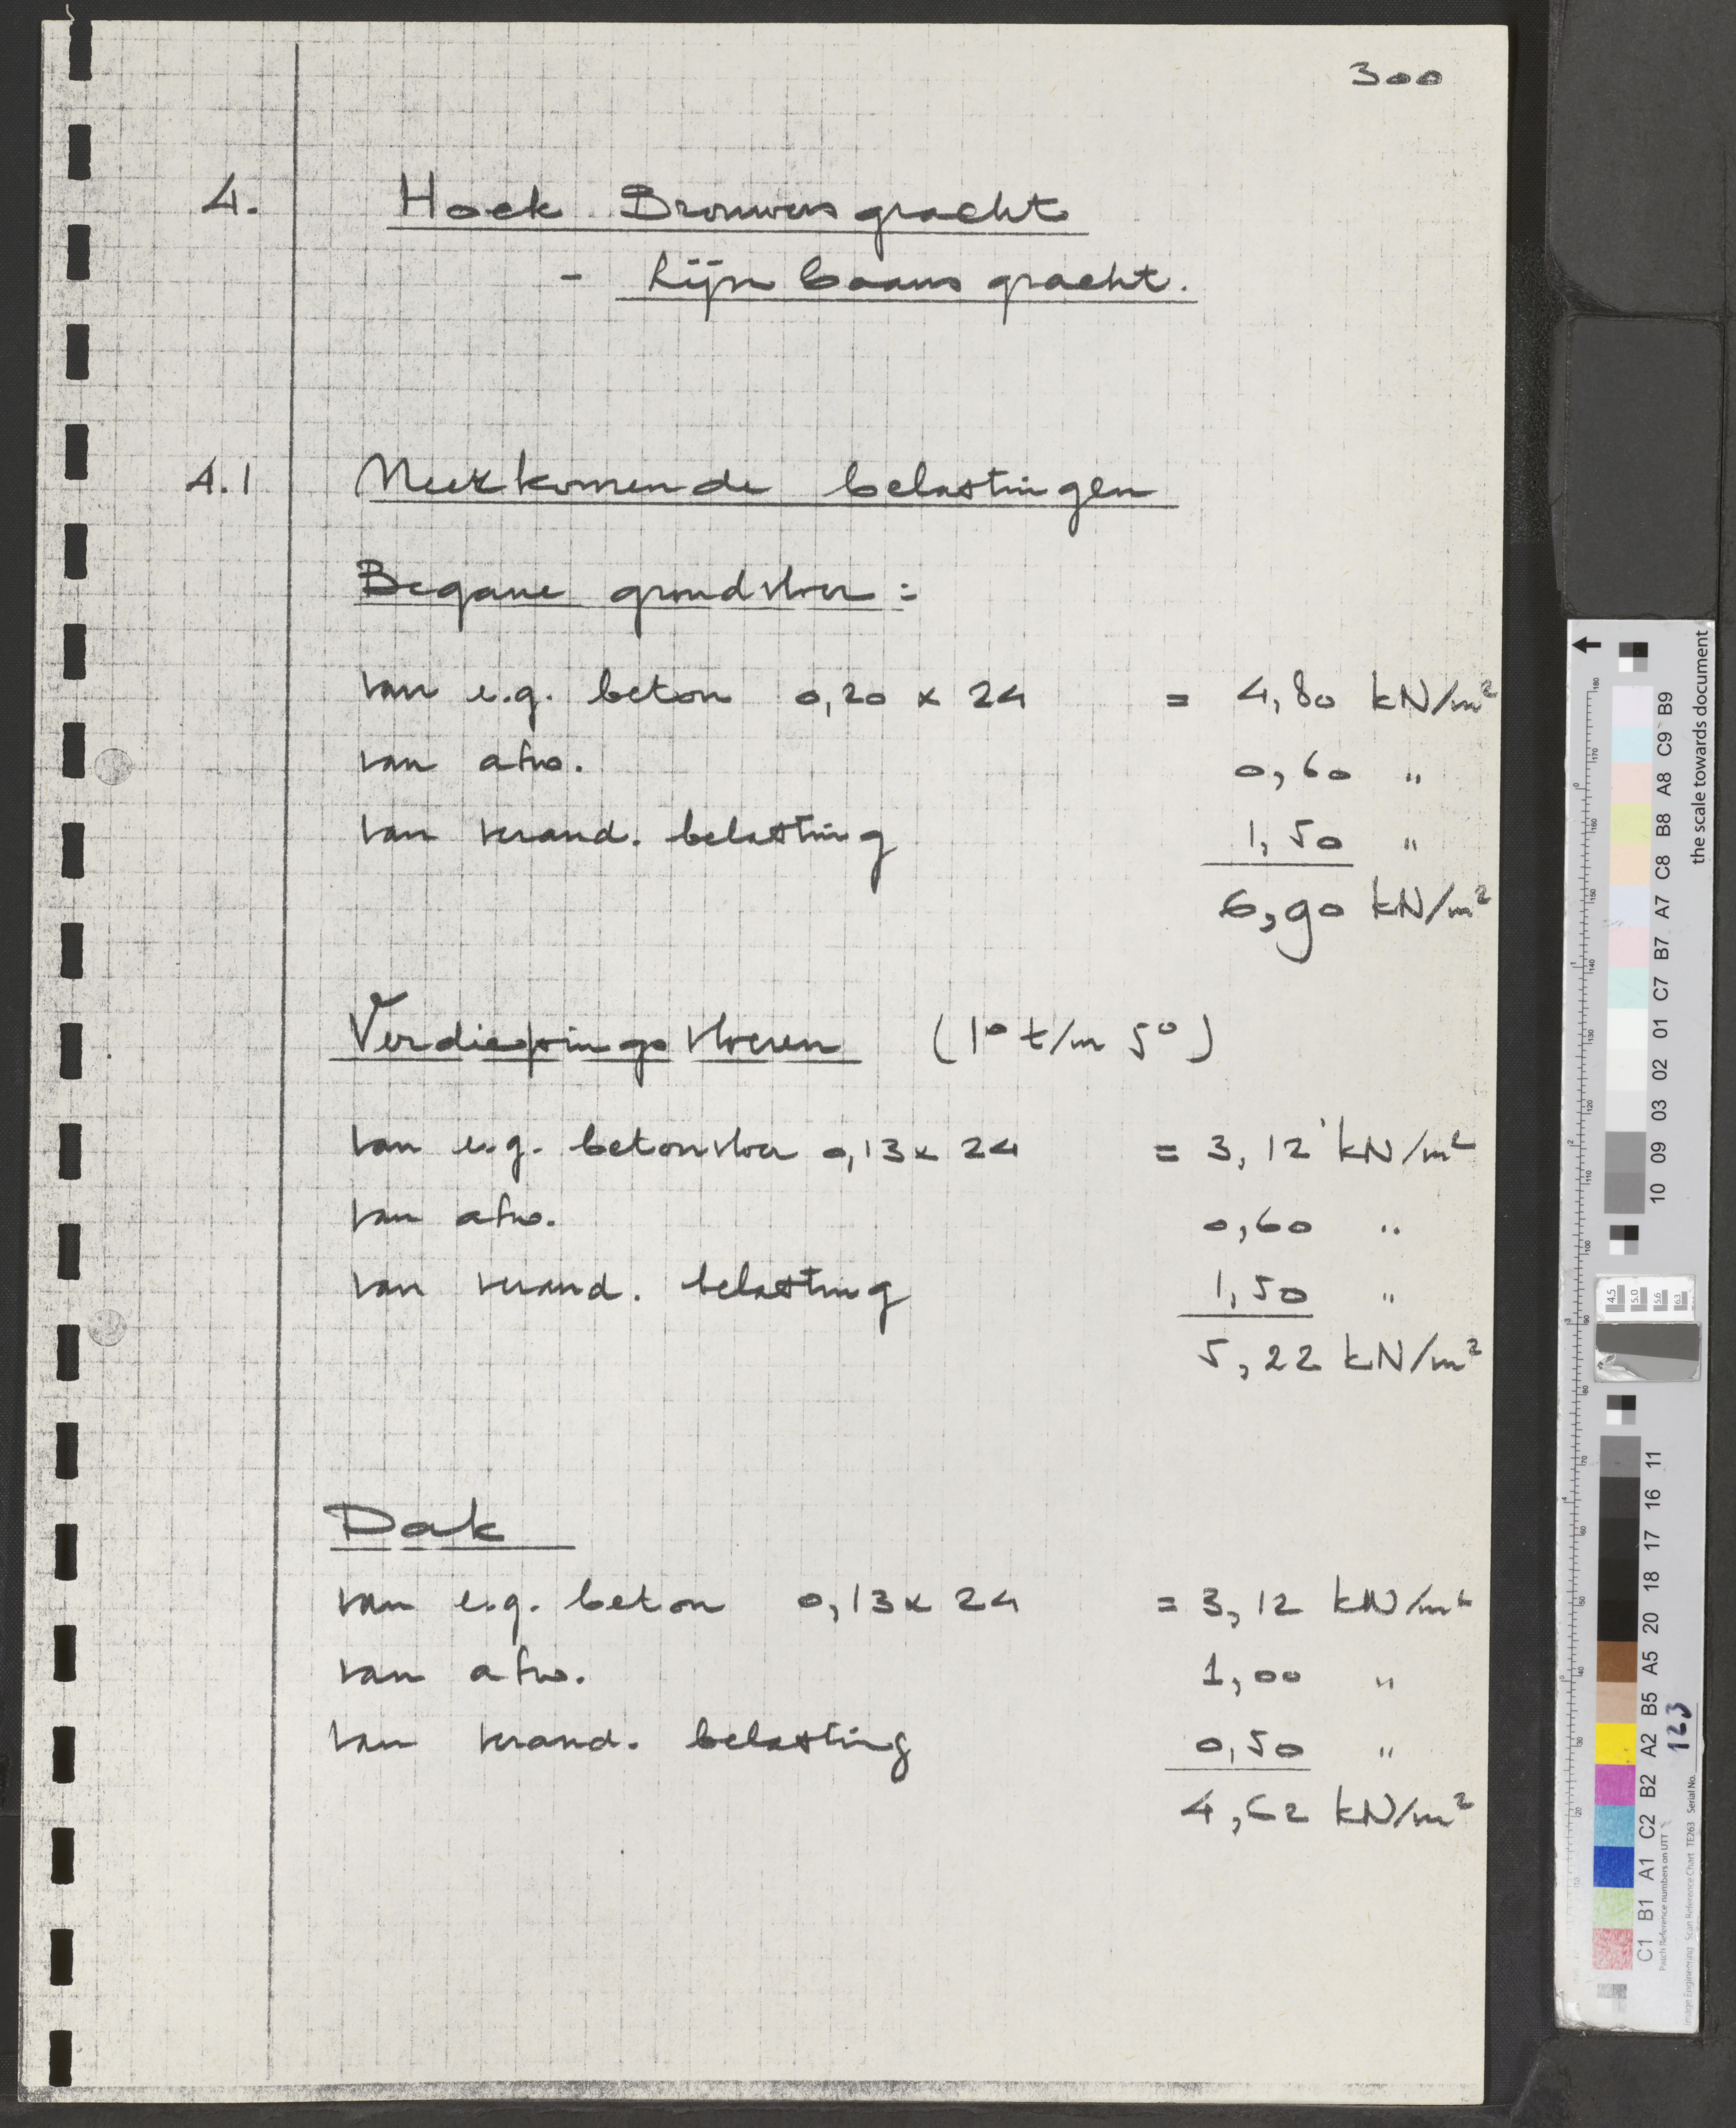 300
4. Hoek Brouwersgracht
- Lijnbaansgracht.
4.1 Meekkomende belastingen
Begane grondvloer :
van e.g. beton 0,20 x 24 = 4,80 kN/m²
van afw. 0,60 "
van verand. belasting 1,50 "
6,90 kN/m²
Verdiepingsvloeren (1° t/m 5°)
van e.g. betonvloer 0,13 x 24 = 3,12 kN/m²
van afw. 0,60 "
van verand. belasting 1,50 "
5,22 kN/m²
Dak
van e.g. beton 0,13 x 24 = 3,12 kN/m²
van afw. 1,00 "
van verand. belasting 0,50 "
4,62 kN/m²
the scale towards document
C1 B1 A1 C2 B2 A2 B5 A5 20 18 17 16 11
10 09 03 02 01 C7 B7 A7 C8 B8 A8 C9 B9
Image Engineering Scan Reference Chart TE263 Serial No. 123
Patch Reference numbers on UTT